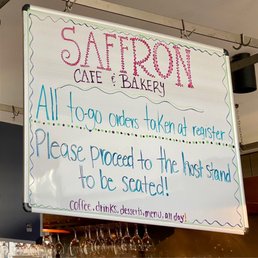 SAFFRON
CAFE & BAKERY
All to-go orders taken at register
Please proceed to the host stand
to be seated!
coffee, drinks, desserts, menu, all day!